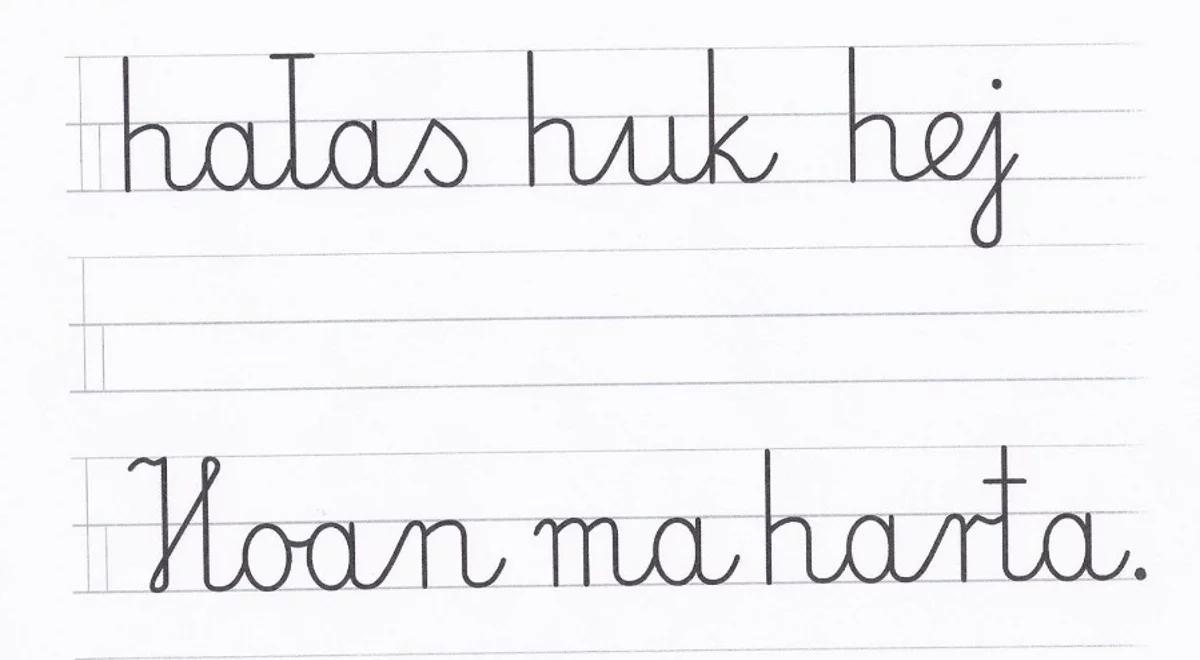 hałas huk hej
Hoan ma harta.